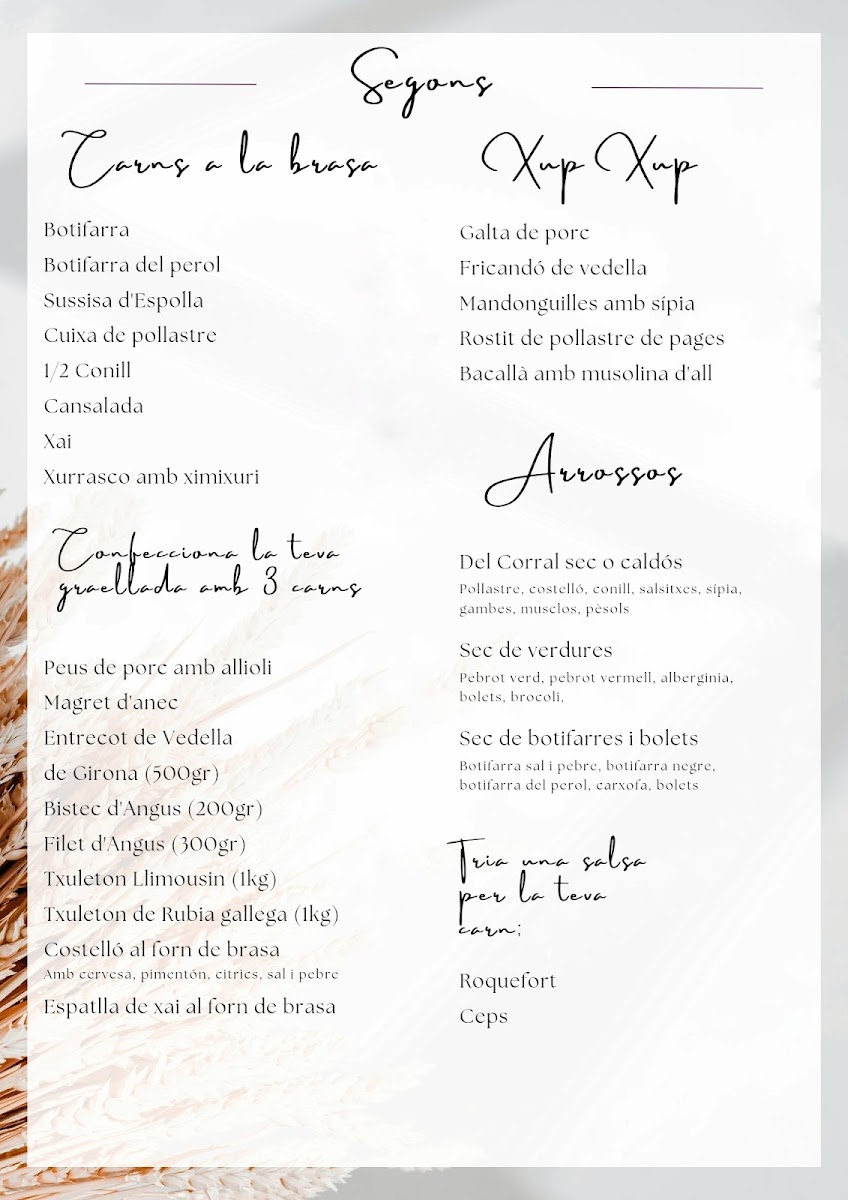 Segons
Carns a la brasa
Botifarra
Botifarra del perol
Sussisa d'Espolla
Cuixa de pollastre
1/2 Conill
Cansalada
Xai
Xurrasco amb ximixuri
Confecciona la teva
graellada amb 3 carns
Peus de porc amb allioli
Magret d'anec
Entrecot de Vedella
de Girona (500gr)
Bistec d'Angus (200gr)
Filet d'Angus (300gr)
Txuleton Llimousin (1kg)
Txuleton de Rubia gallega (1kg)
Costelló al forn de brasa
Amb cervesa, pimentón, citrics, sal i pebre
Espatlla de xai al forn de brasa
Xup Xup
Galta de porc
Fricandó de vedella
Mandonguilles amb sípia
Rostit de pollastre de pages
Bacallà amb musolina d'all
Arrossos
Del Corral sec o caldós
Pollastre, costelló, conill, salsitxes, sípia,
gambes, musclos, pèsols
Sec de verdures
Pebrot verd, pebrot vermell, alberginia,
bolets, brocoli,
Sec de botifarres i bolets
Botifarra sal i pebre, botifarra negre,
botifarra del perol, carxofa, bolets
Tria una salsa
per la teva
carn;
Roquefort
Ceps